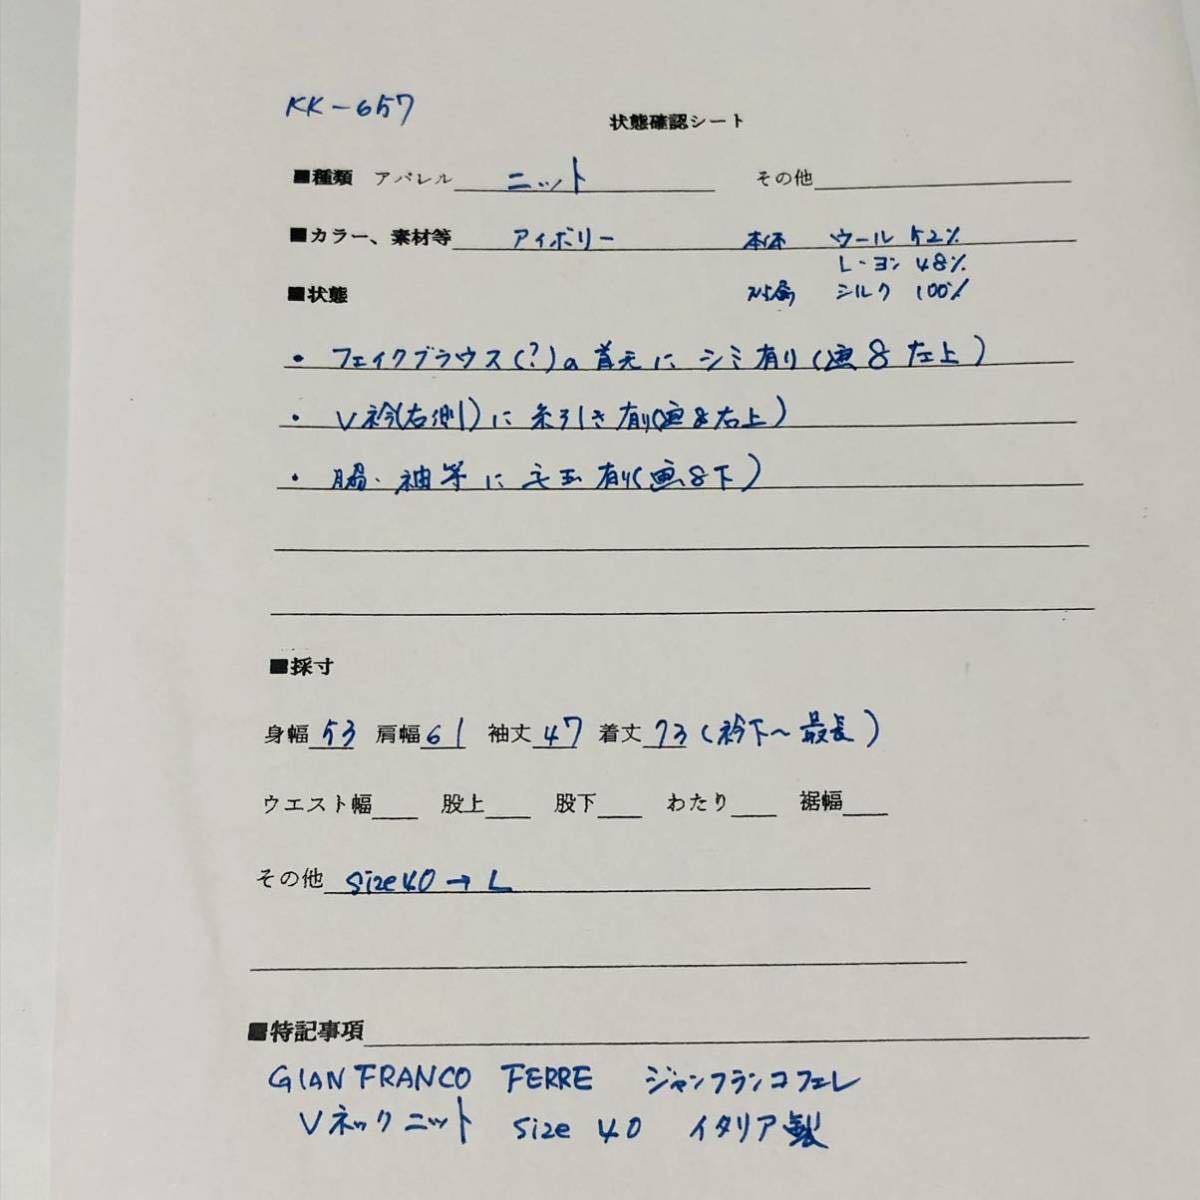 KK-657
状態確認シート
■種類 アパレル ニット その他
■カラー、素材等 アイボリー 本体 ウール 52%
レーヨン 48%
■状態 別布 シルク 100%
・フェイクブラウス(?)の首元に シミ有り(画8左上)
・V衿(右側)に 糸引き有り(画8右上)
・脇・袖等に 毛玉有り(画8下)
■採寸
身幅 53 肩幅 61 袖丈 47 着丈 73 (衿下〜最長)
ウエスト幅 股上 股下 わたり 裾幅
その他 size40→L
■特記事項
GIANFRANCO FERRE ジャンフランコフェレ
Vネックニット size 40 イタリア製